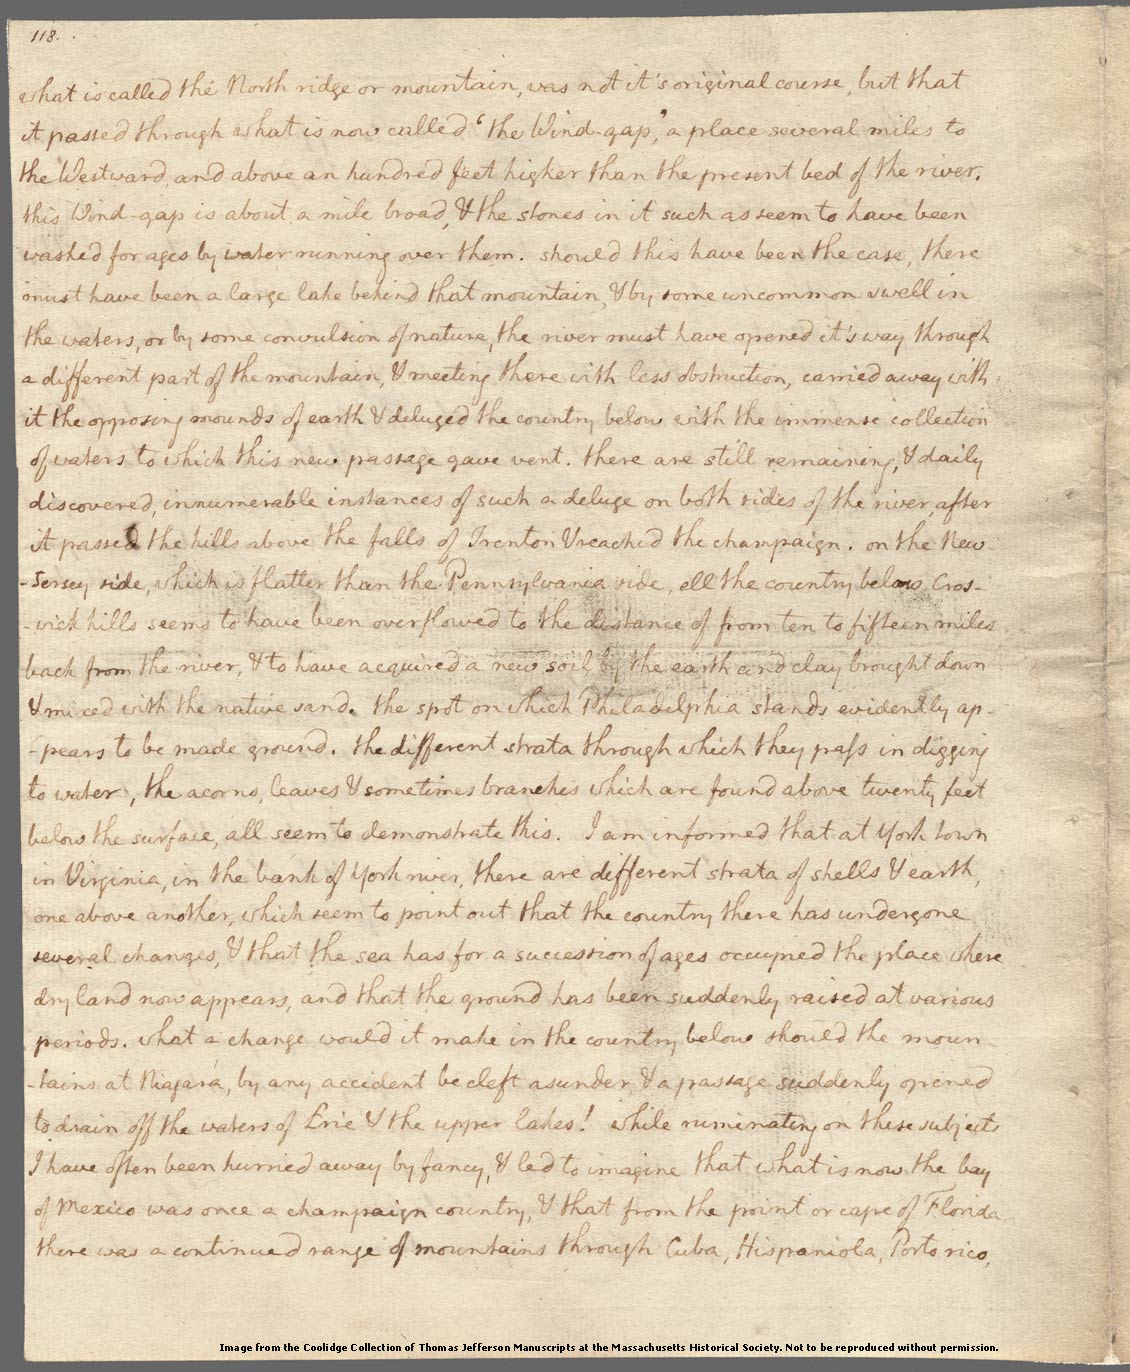 118.
what is called the North ridge or mountain, was not it's original course, but that
it passed through what is now called 'the Wind-gap,' a place several miles to
the Westward, and above an hundred feet higher than the present bed of the river.
this Wind-gap is about a mile broad, & the stones in it such as seem to have been
washed for ages by water running over them. should this have been the case, there
must have been a large lake behind that mountain, & by some uncommon swell in
the waters, or by some convulsion of nature, the river must have opened it's way through
a different part of the mountain, & meeting there with less obstruction, carried away with
it the opposing mounds of earth & deluged the country below with the immense collection
of waters to which this new passage gave vent. there are still remaining, & daily
discovered, innumerable instances of such a deluge on both sides of the river, after
it passed the hills above the falls of Trenton & reached the champaign. on the New-
-Jersey side, which is flatter than the Pennsylvania side, all the country below Cros-
-wick hills seems to have been overflowed to the distance of from ten to fifteen miles
back from the river, & to have acquired a new soil by the earth and clay brought down
& mixed with the native sand. the spot on which Philadelphia stands evidently ap-
-pears to be made ground. the different strata through which they pass in digging
to water, the acorns, leaves & sometimes branches which are found above twenty feet
below the surface, all seem to demonstrate this. I am informed that at York town
in Virginia, in the bank of York river, there are different strata of shells & earth,
one above another, which seem to point out that the country there has undergone
several changes, & that the sea has for a succession of ages occupied the place where
dry land now appears, and that the ground has been suddenly raised at various
periods. what a change would it make in the country below should the moun-
-tains at Niagara, by any accident be cleft asunder, & a passage suddenly opened
to drain off the waters of Erie & the upper lakes! while ruminating on these subjects
I have often been hurried away by fancy, & led to imagine that what is now the bay
of Mexico was once a champaign country, & that from the point or cape of Florida
there was a continued range of mountains through Cuba, Hispaniola, Porto rico,
Image from the Coolidge Collection of Thomas Jefferson Manuscripts at the Massachusetts Historical Society. Not to be reproduced without permission.